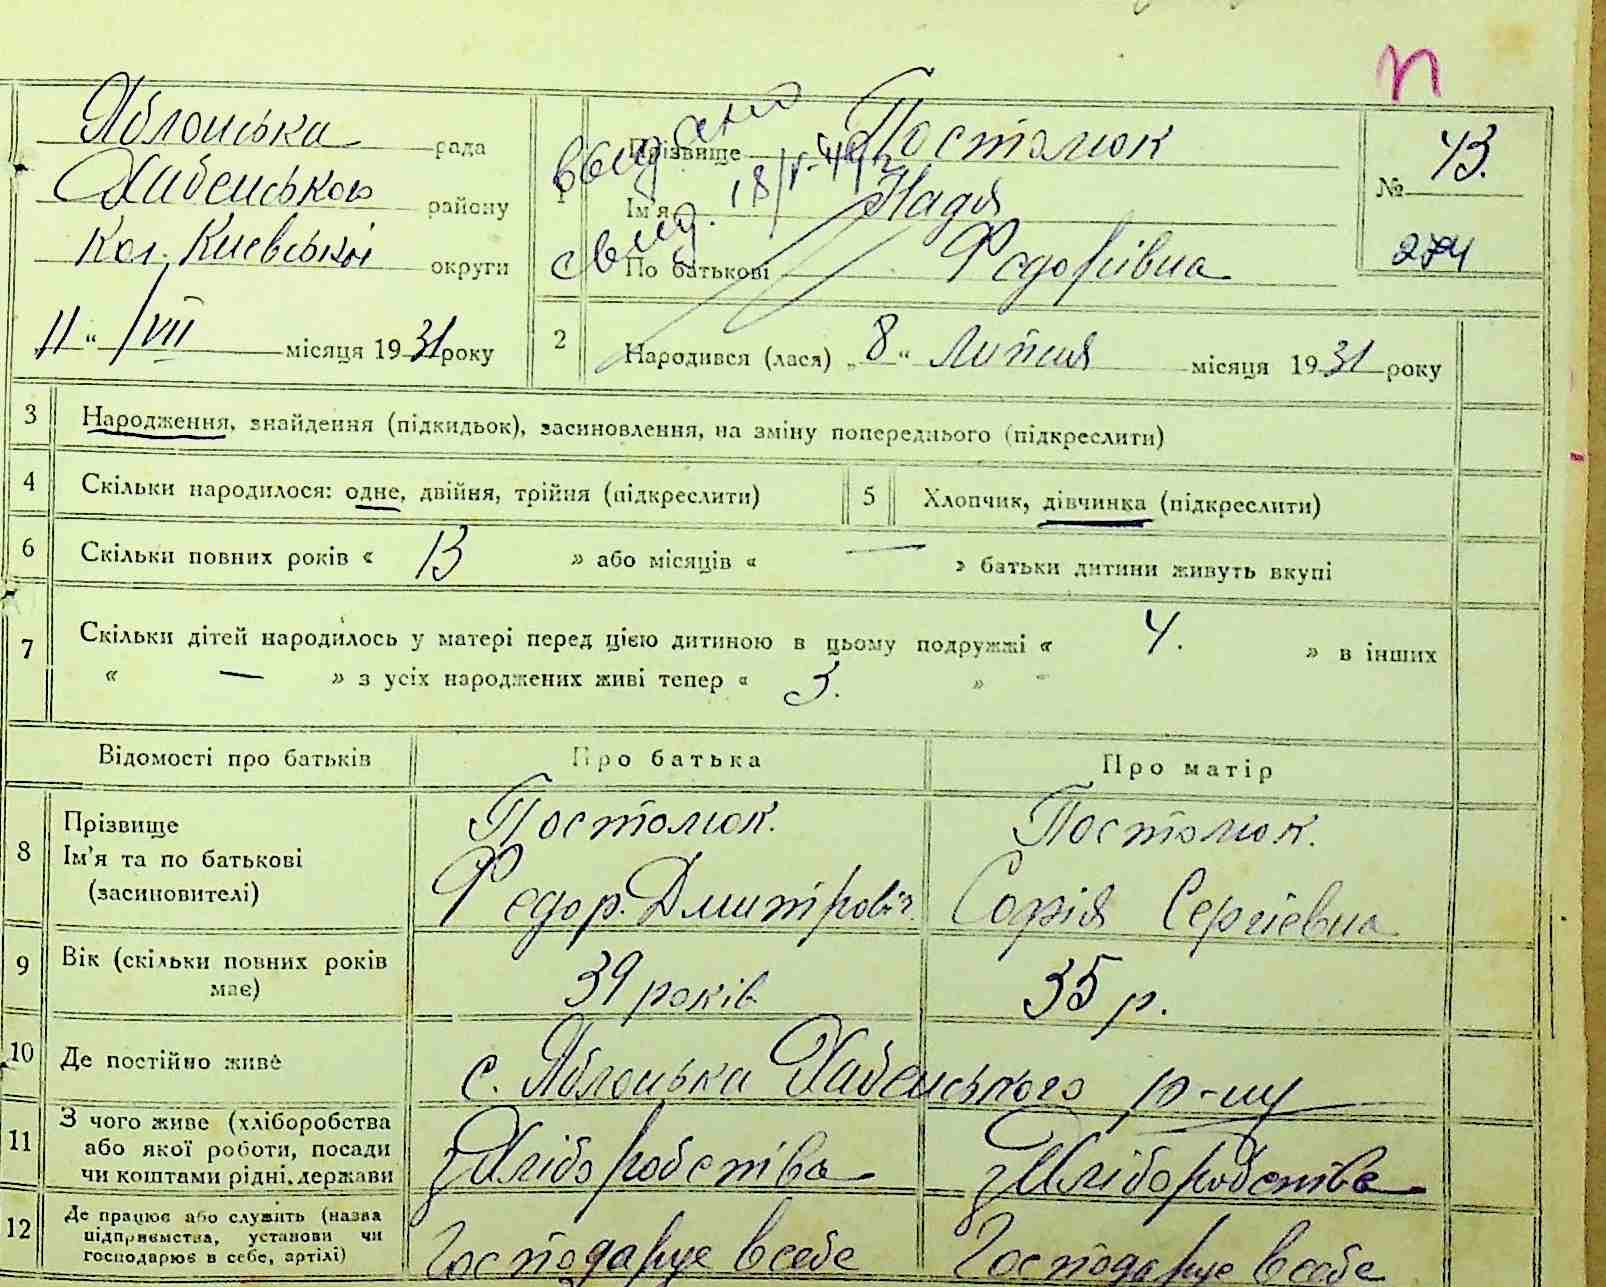 П
Яблонська рада
Хабенського району
Кол. Київської округи
„11“ VII місяця 1931 року
1
Прізвище Постолюк
Ім'я Надія
По батькові Федорівна
видано
свид. 18/V-
№ 43.
274
2 Народився (лася) „8“ Липня місяця 1931 року
3 Народження, знайдення (підкидьок), засиновлення, на зміну попереднього (підкреслити)
4 Скільки народилося: одне, двійня, трійня (підкреслити) 5 Хлопчик, дівчинка (підкреслити)
6 Скільки повних років « 13 » або місяців « — » батьки дитини живуть вкупі
7 Скільки дітей народилось у матері перед цією дитиною в цьому подружжі « 4. » в інших
« — » з усіх народжених живі тепер « 3. »
Відомості про батьків Про батька Про матір
8 Прізвище Постолюк. Постолюк.
Ім'я та по батькові Федор. Дмитрович. Софія Сергіевна
(засиновителі)
9 Вік (скільки повних років має) 39 років 35 р.
10 Де постійно живе с. Яблонька Хабенського р-ну
11 З чого живе (хліборобства
або якої роботи, посади
чи коштами рідні, держави
з Хліборобства з Хліборобства
12 Де працює або служить (назва
підприємства, установи чи
господарює в себе, артілі)
Господарує в себе Господарує в себе